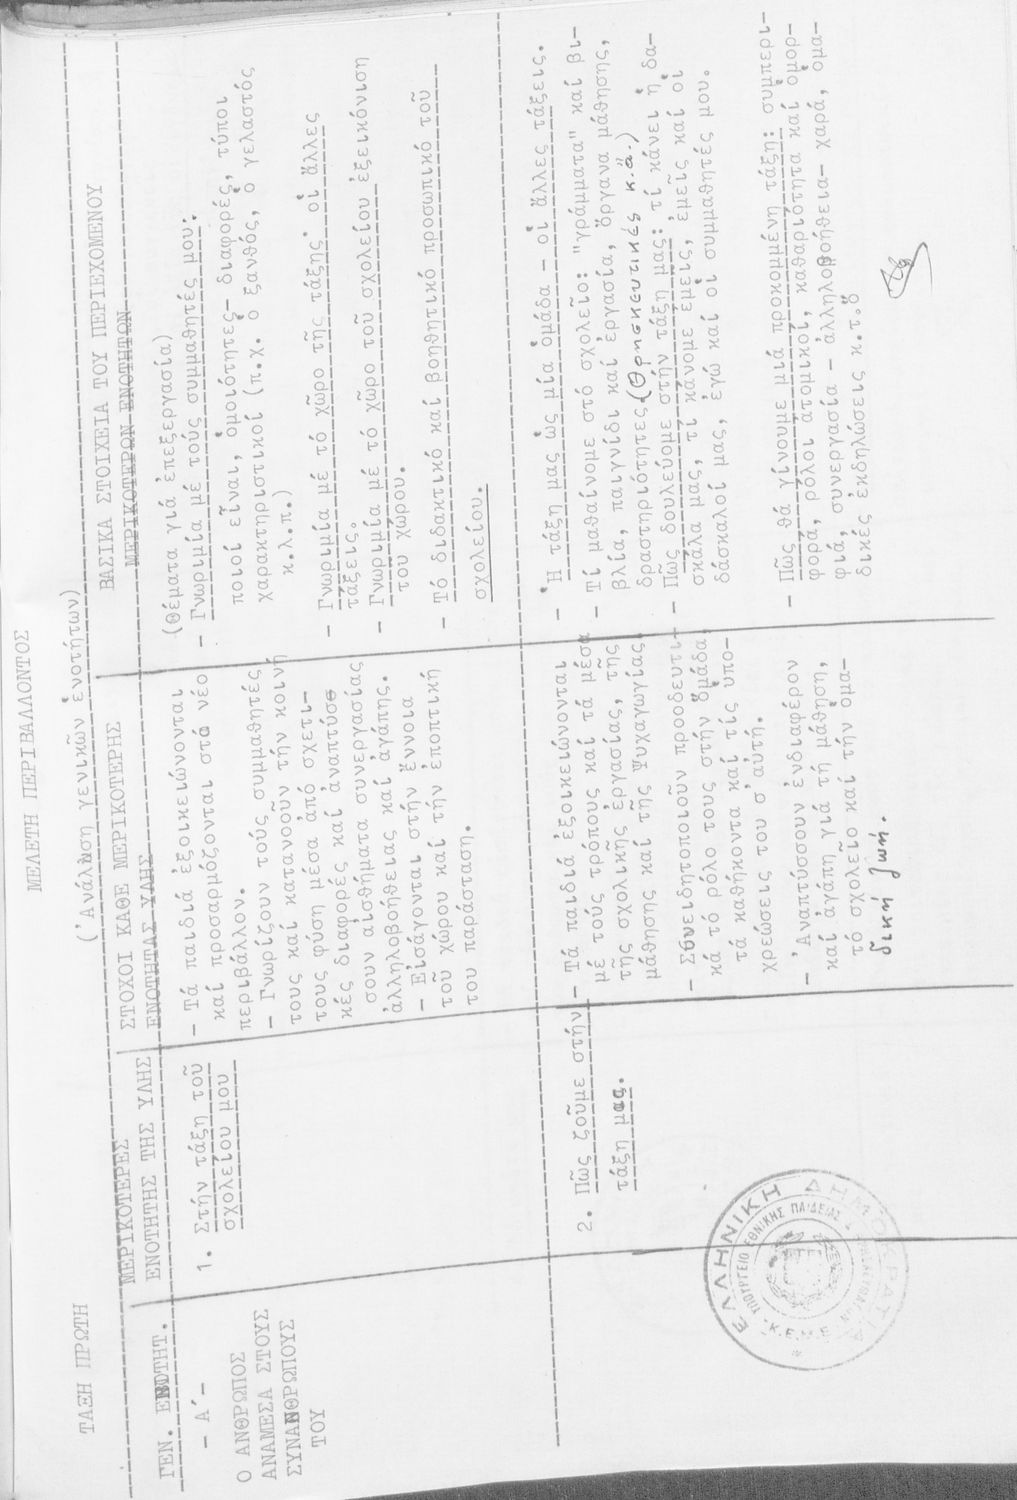 ΜΕΛΕΤΗ ΠΕΡΙΒΑΛΛΟΝΤΟΣ
ΤΑΞΗ ΠΡΩΤΗ
('Ανάλυση γενικῶν ἑνοτήτων)
ΓΕΝ. ΕΝΟΤΗΤ.
ΜΕΡΙΚΟΤΕΡΕΣ
ΕΝΟΤΗΤΗΣ ΤΗΣ ΥΛΗΣ
ΣΤΟΧΟΙ ΚΑΘΕ ΜΕΡΙΚΟΤΕΡΗΣ
ΕΝΟΤΗΤΑΣ ΥΛΗΣ
ΒΑΣΙΚΑ ΣΤΟΙΧΕΙΑ ΤΟΥ ΠΕΡΙΕΧΟΜΕΝΟΥ
ΜΕΡΙΚΟΤΕΡΩΝ ΕΝΟΤΗΤΩΝ
- Α´-
Ο ΑΝΘΡΩΠΟΣ
ΑΝΑΜΕΣΑ ΣΤΟΥΣ
ΣΥΝΑΝΘΡΩΠΟΥΣ
ΤΟΥ
1. Στήν τάξη τοῦ
σχολείου μου
- Τά παιδιά ἐξοικειώνονται
καί προσαρμόζονται στό νέο
περιβάλλον.
- Γνωρίζουν τούς συμμαθητές
τους καί κατανοοῦν τήν κοινή
τους φύση μέσα ἀπό σχετι-
κές διαφορές καί ἀναπτύσσ
σουν αἰσθήματα συνεργασίας
ἀλληλοβοήθειας καί ἀγάπης.
- Εἰσάγονται στήν ἔννοια
τοῦ χώρου καί τήν ἐποπτική
του παράσταση.
(Θέματα γιά ἐπεξεργασία)
- Γνωριμία μέ τούς συμμαθητές μου:
ποιοί εἶναι, ὁμοιότητες- διαφορές, τύποι
χαρακτηριστικοί (π.χ. ὁ ξανθός, ὁ γελαστός
κ.λ.π.)
- Γνωριμία μέ τό χῶρο τῆς τάξης· οἱ ἄλλες
τάξεις.
- Γνωριμία μέ τό χῶρο τοῦ σχολείου ἐξεικόνιση
του χώρου.
- Τό διδακτικό καί βοηθητικό προσωπικό τοῦ
σχολείου.
2. Πῶς ζοῦμε στήν
τάξη μας.
- Τά παιδιά ἐξοικειώνονται
μέ τούς τρόπους καί τά μέσα
τῆς σχολικῆς ἐργασίας, τῆς
μάθησης καί τῆς ψυχαγωγίας.
- Συνειδητοποιοῦν προοδευτι-
κά τό ρόλο τους στήν ὁμάδα,
τά καθήκοντα καί τίς ὑπο-
χρεώσεις του σ'αὐτή.
- 'Αναπτύσσουν ἐνδιαφέρον
καί ἀγάπη γιά τή μάθηση,
τό σχολεῖο καί τήν ὁμα-
δική ζωή.
- Ἡ τάξη μας ὡς μία ὁμάδα - οἱ ἄλλες τάξεις.
- Τί μαθαίνομε στό σχολεῖο: "γράμματα" καί βι-
βλία, παιγνίδι καί ἐργασία, ὄργανα μάθησης,
δραστηριότητες (θρησκευτικές κ.ἄ.)
- Πῶς δουλεύομε στήν τάξη μας: τί κάνει ἡ δα-
σκάλα μας, τί κάνομε ἐμεῖς, ἐμεῖς καί οἱ
δάσκαλοί μας, ἐγώ καί οἱ συμμαθητές μου.
- Πῶς θά γίνουμε μιά προκομμένη τάξη: συμπερι-
φορά, ρόλοι ἀτομικοί, καθαριότητα καί ὀμορ-
φιά, συνεργασία - ἀλληλοβοήθεια- χαρά, ὁμα-
δικές ἐκδηλώσεις κ.τ.ὅ
ΕΛΛΗΝΙΚΗ ΔΗΜΟΚΡΑΤΙΑ
ΥΠΟΥΡΓΕΙΟ ΕΘΝΙΚΗΣ ΠΑΙΔΕΙΑΣ
Κ.Ε.Μ.Ε.